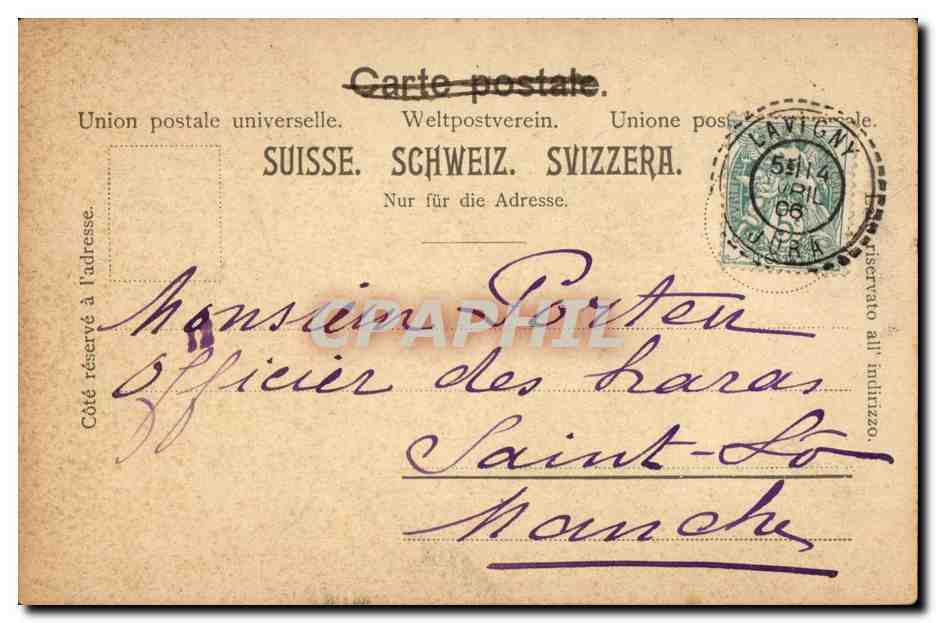 Carte postale.
Union postale universelle. Weltpostverein. Unione postale universale.
SUISSE. SCHWEIZ. SVIZZERA.
Nur für die Adresse.
Côté réservé à l'adresse.
riservato all' indirizzo.
LAVIGNY
5 14
AVRIL
06
JURA
Monsieur Porteu
Officier des haras
Saint-Lô
Manche
CPAPHIL